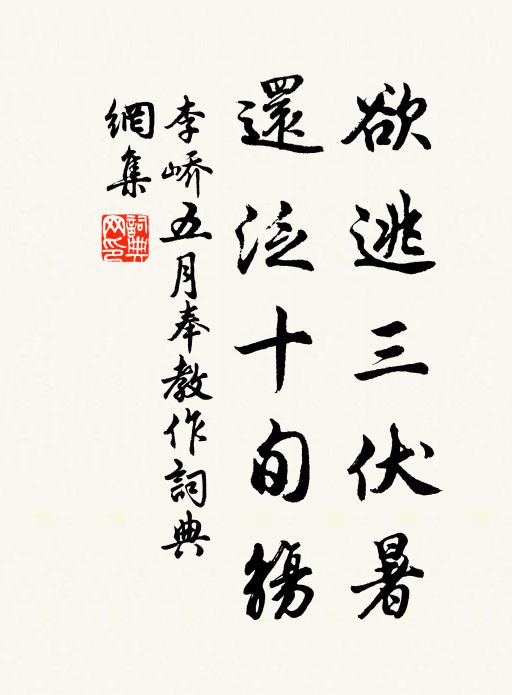 欲逃三伏暑
還泛十旬觴
李嶠五月奉教作詞典
網集
詞典網印